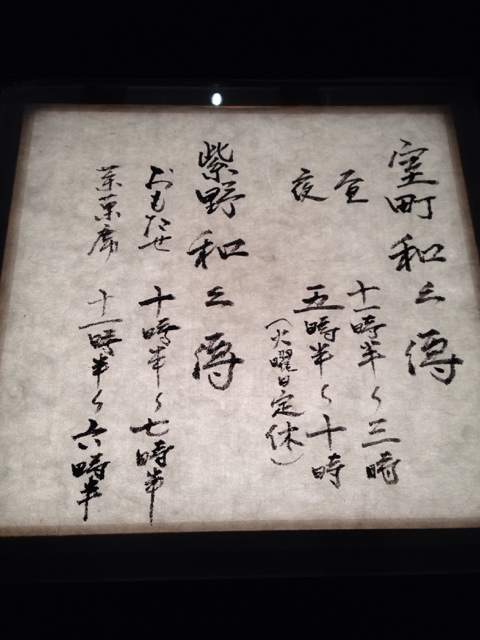 室町和久傳
昼 十一時半〜三時
夜 五時半〜十時
(火曜日定休)
紫野和久傳
おもたせ 十時半〜七時半
茶菓席 十一時半〜六時半